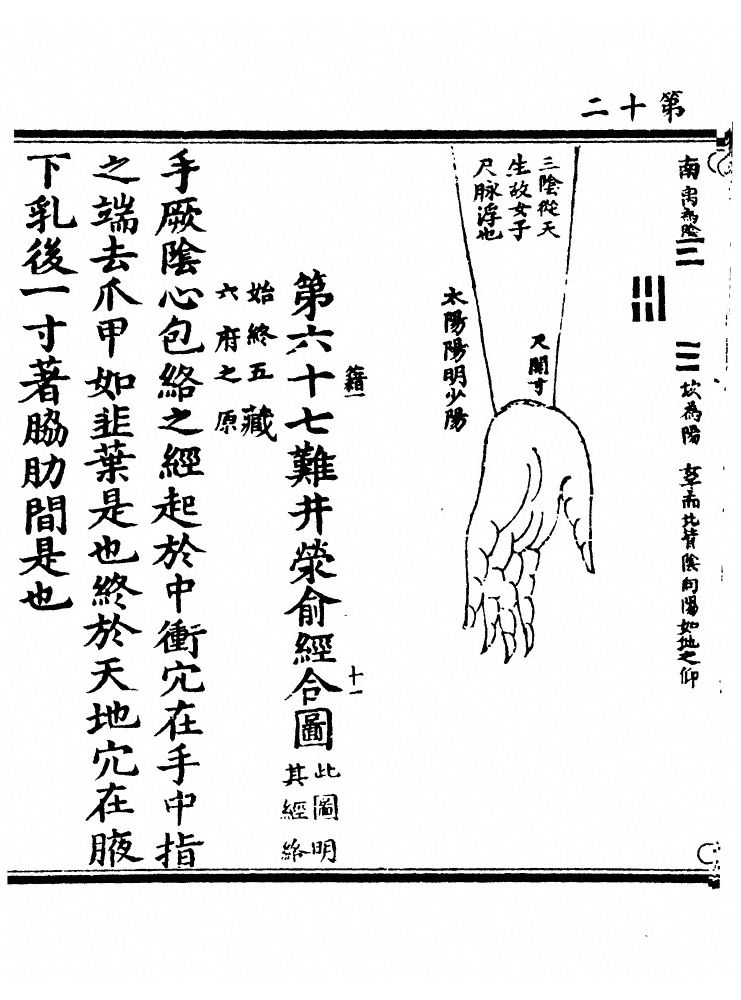 第十二
南 為陰
坎為陽 北背陰向陽如地之仰
三陰從天
生故女子
尺脉浮也
尺關寸
太陽陽明少陽
籍一
十一
第六十七難井滎俞經合圖
此圖明
其經絡
始終五藏
六府之原
手厥陰心包絡之經起於中衝穴在手中指
之端去爪甲如韭葉是也終於天地穴在腋
下乳後一寸著脇肋間是也